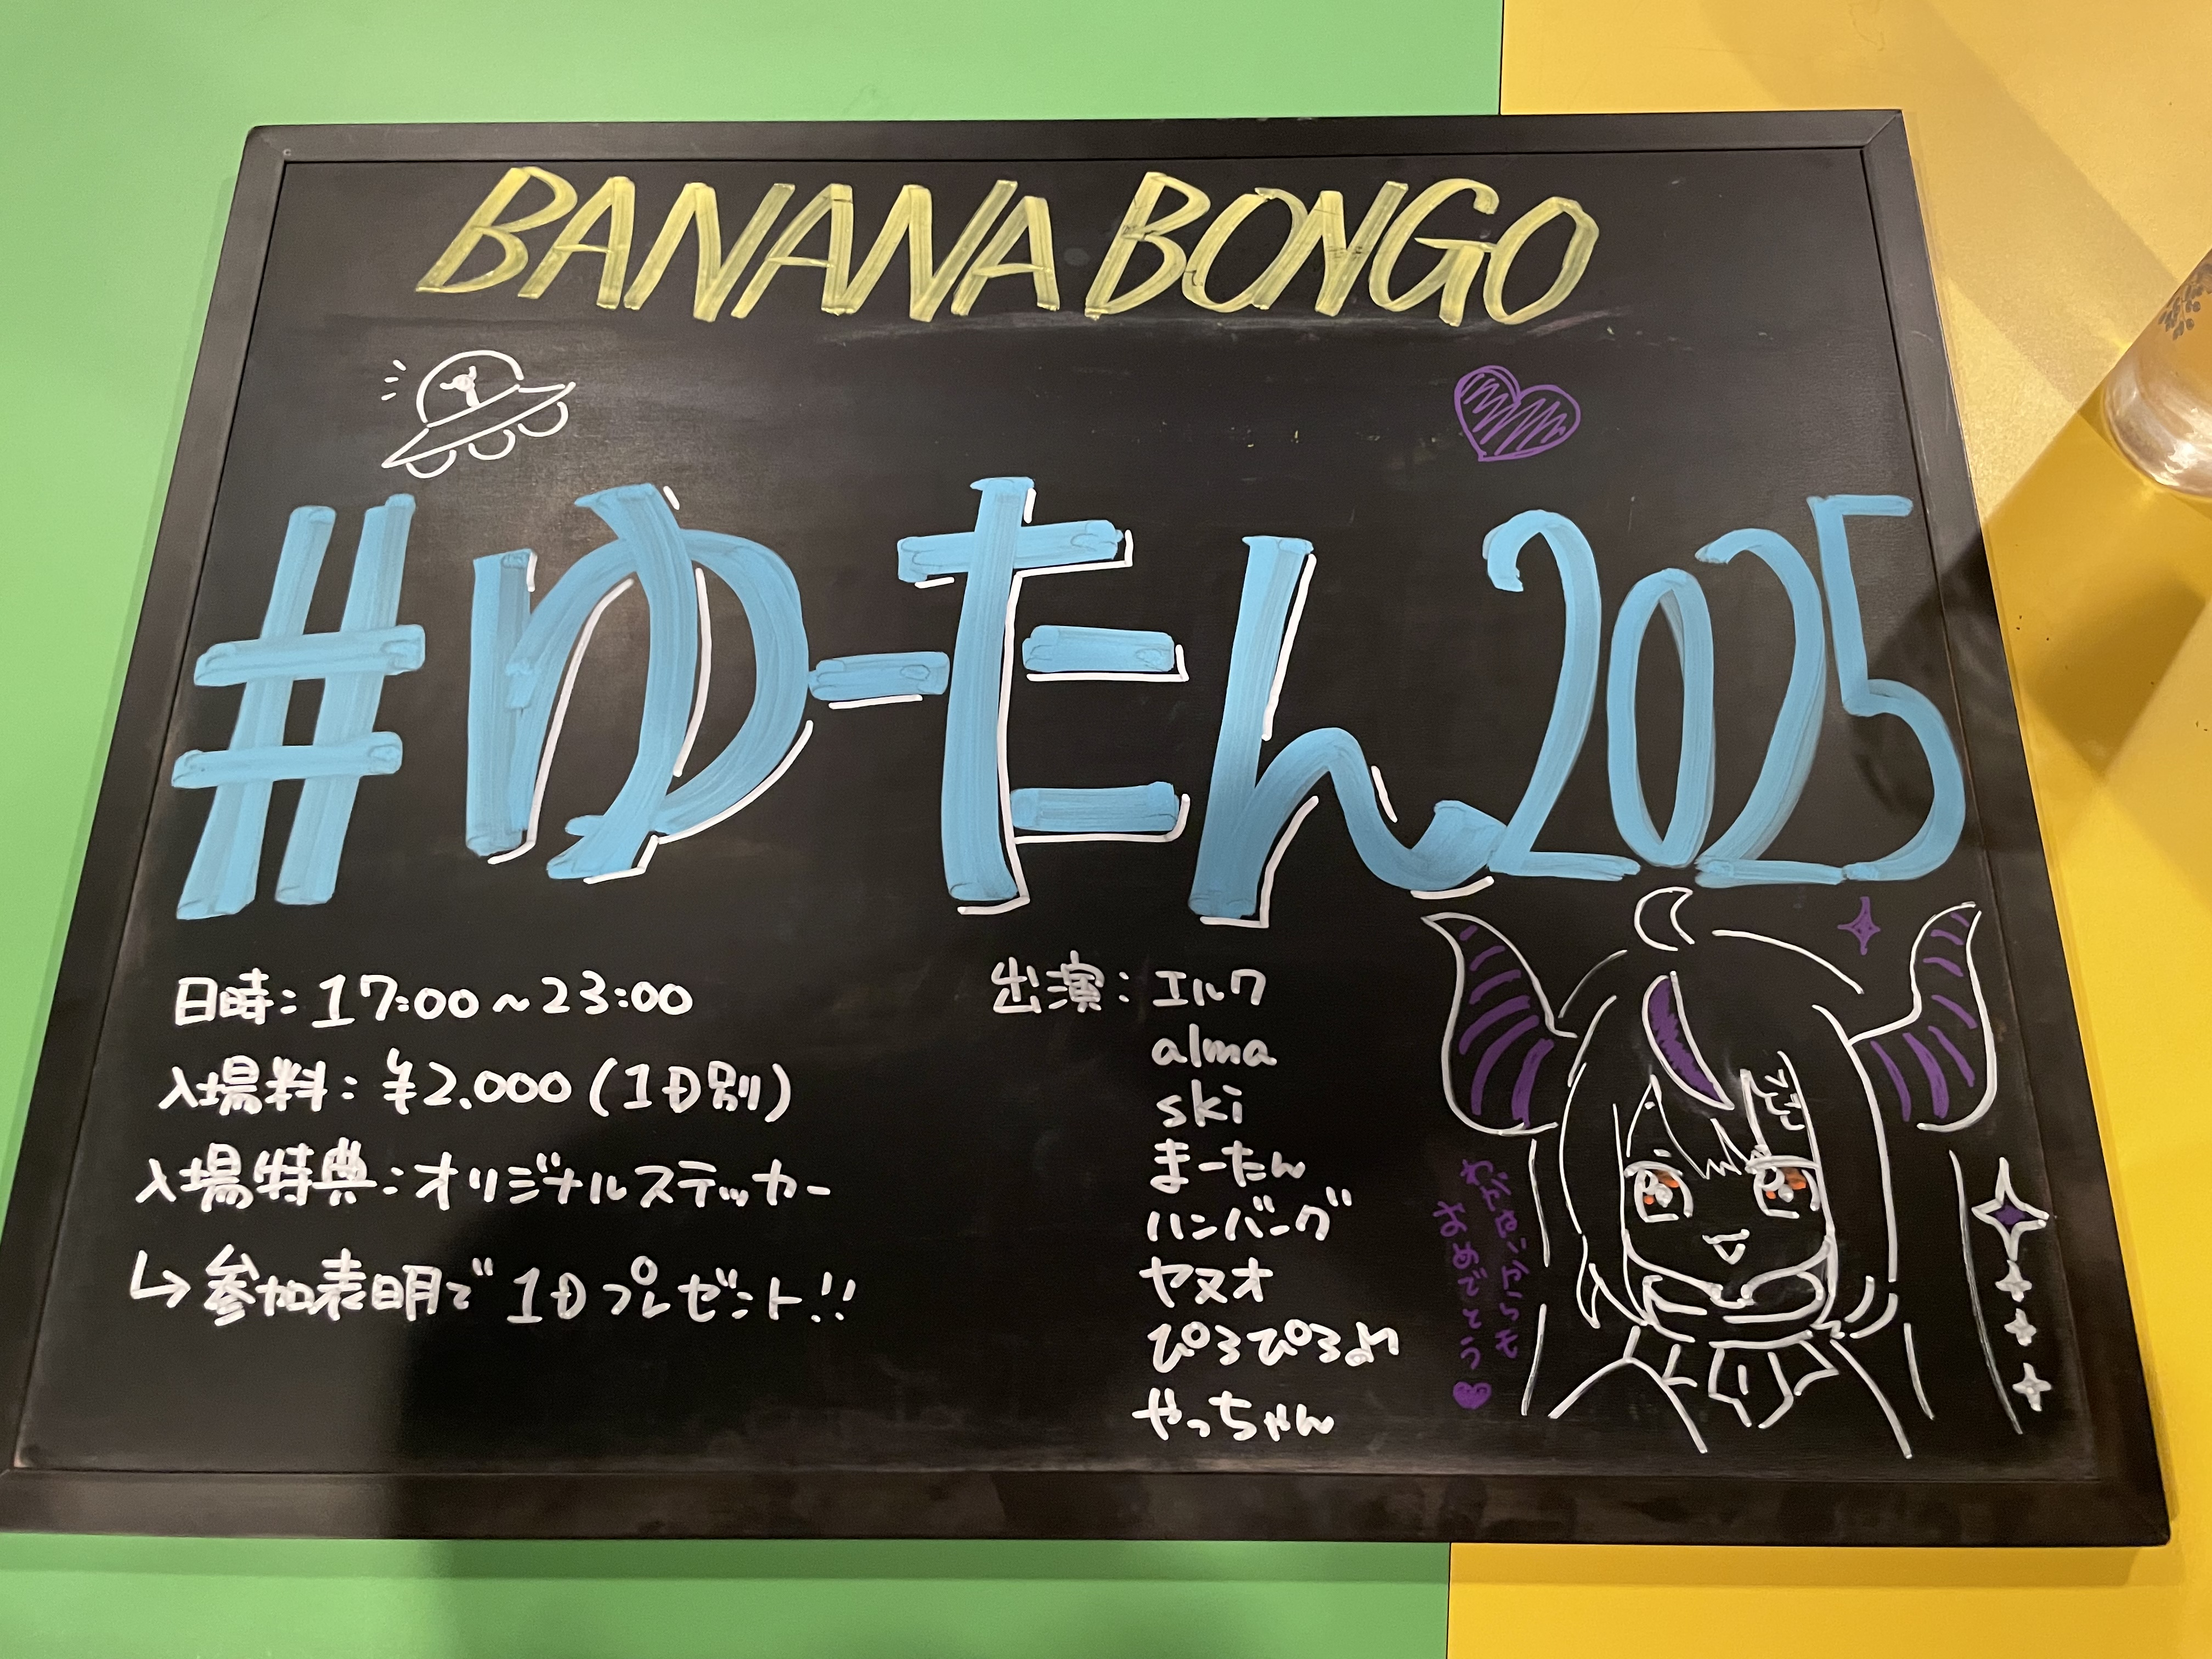 BANANA BONGO
#ゆーたん2025
日時:17:00~23:00
入場料:¥2,000(1D別)
入場特典:オリジナルステッカー
↳参加表明で1Dプレゼント!!
出演:エルク
alma
ski
まーたん
ハンバーグ
ヤヌオ
ぴろぴろみ
やっちゃん
わがはいからも
おめでとう